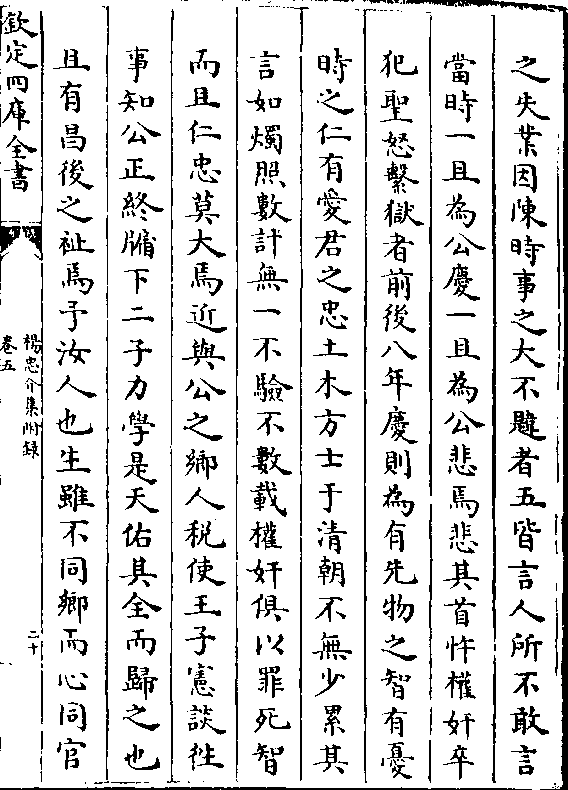 之失業因陳時事之大不韙者五皆言人所不敢言
當時一且為公慶一且為公悲焉悲其首忤權奸卒
犯聖怒繫獄者前後八年慶則為有先物之智有憂
時之仁有愛君之忠土木方士于清朝不無少累其
言如燭照數計無一不驗不數載權奸俱以罪死智
而且仁忠莫大焉近與公之鄉人稅使王子憲談徃
事知公正終牖下二子力學是天佑其全而歸之也
且有昌後之祉焉予汝人也生雖不同鄉而心同官
欽定四庫全書
楊忠介集附録
卷五
二十